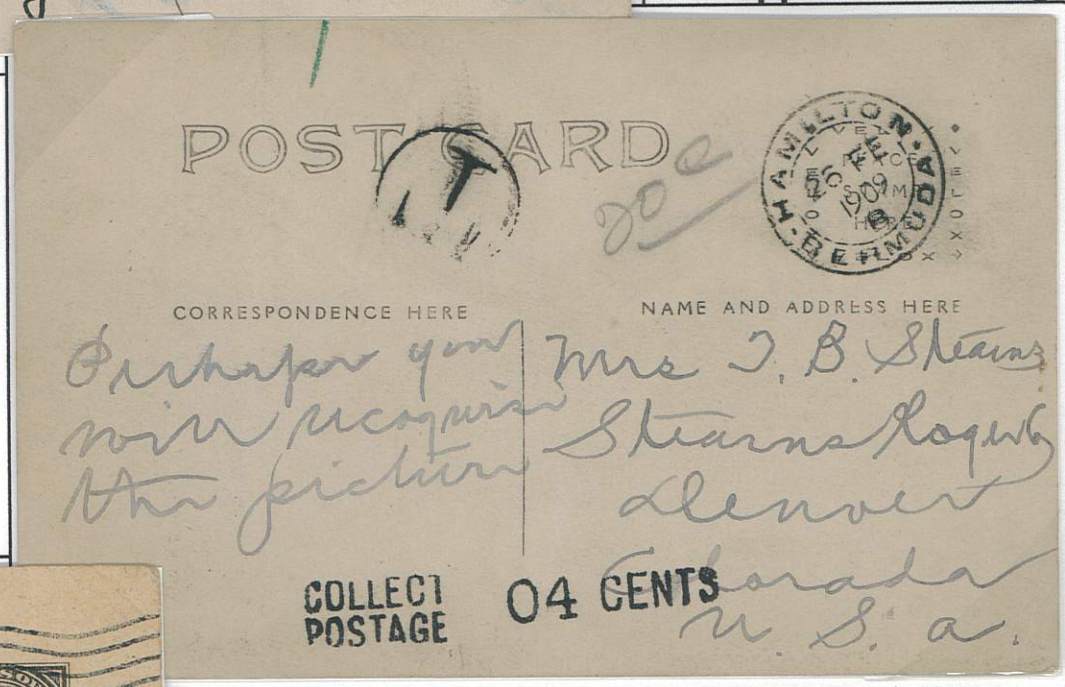 POST CARD
T
20c
HAMILTON · BERMUDA
26 FE
1909
PLACE
STAMP
HERE
VELOX
CORRESPONDENCE HERE
NAME AND ADDRESS HERE
Perhaps you
will recognize
the picture
Mrs T. B. Stearns
Stearns Roger Co
Denver
Colorado
U. S. a.
COLLECT
POSTAGE
04 CENTS